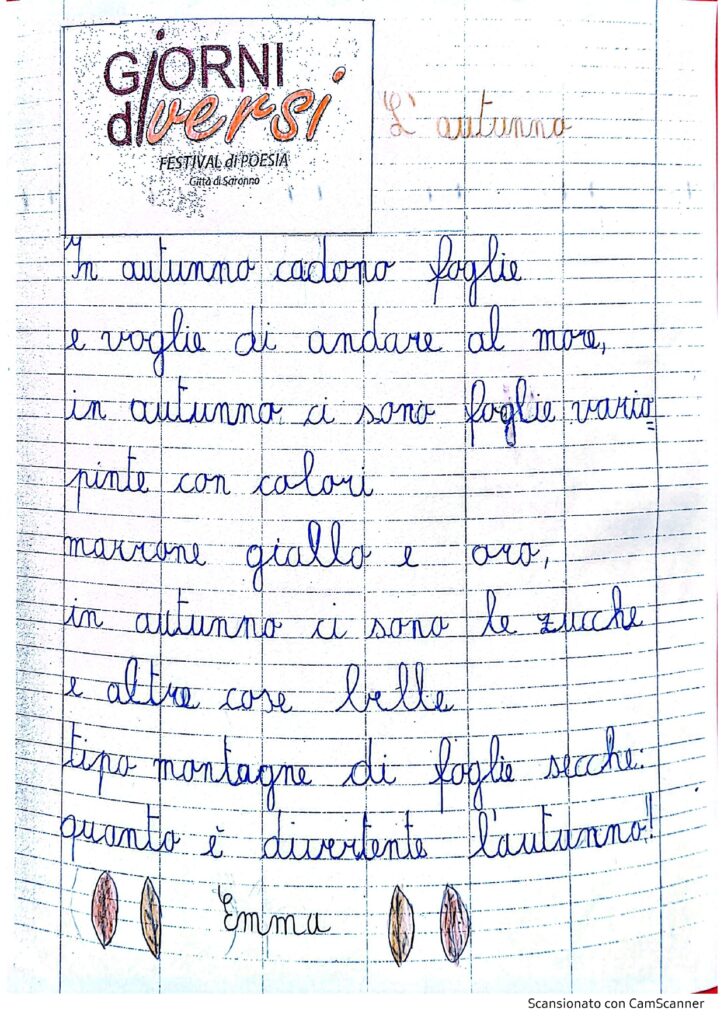 GiORNI
diversi
FESTIVAL di POESIA
Città di Saronno
L'autunno
In autunno cadono foglie
e voglie di andare al mare,
in autunno ci sono foglie vario=
pinte con colori
marrone giallo e oro,
in autunno ci sono le zucche
e altre cose belle
tipo montagne di foglie secche:
quanto è divertente l'autunno!
Emma
Scansionato con CamScanner